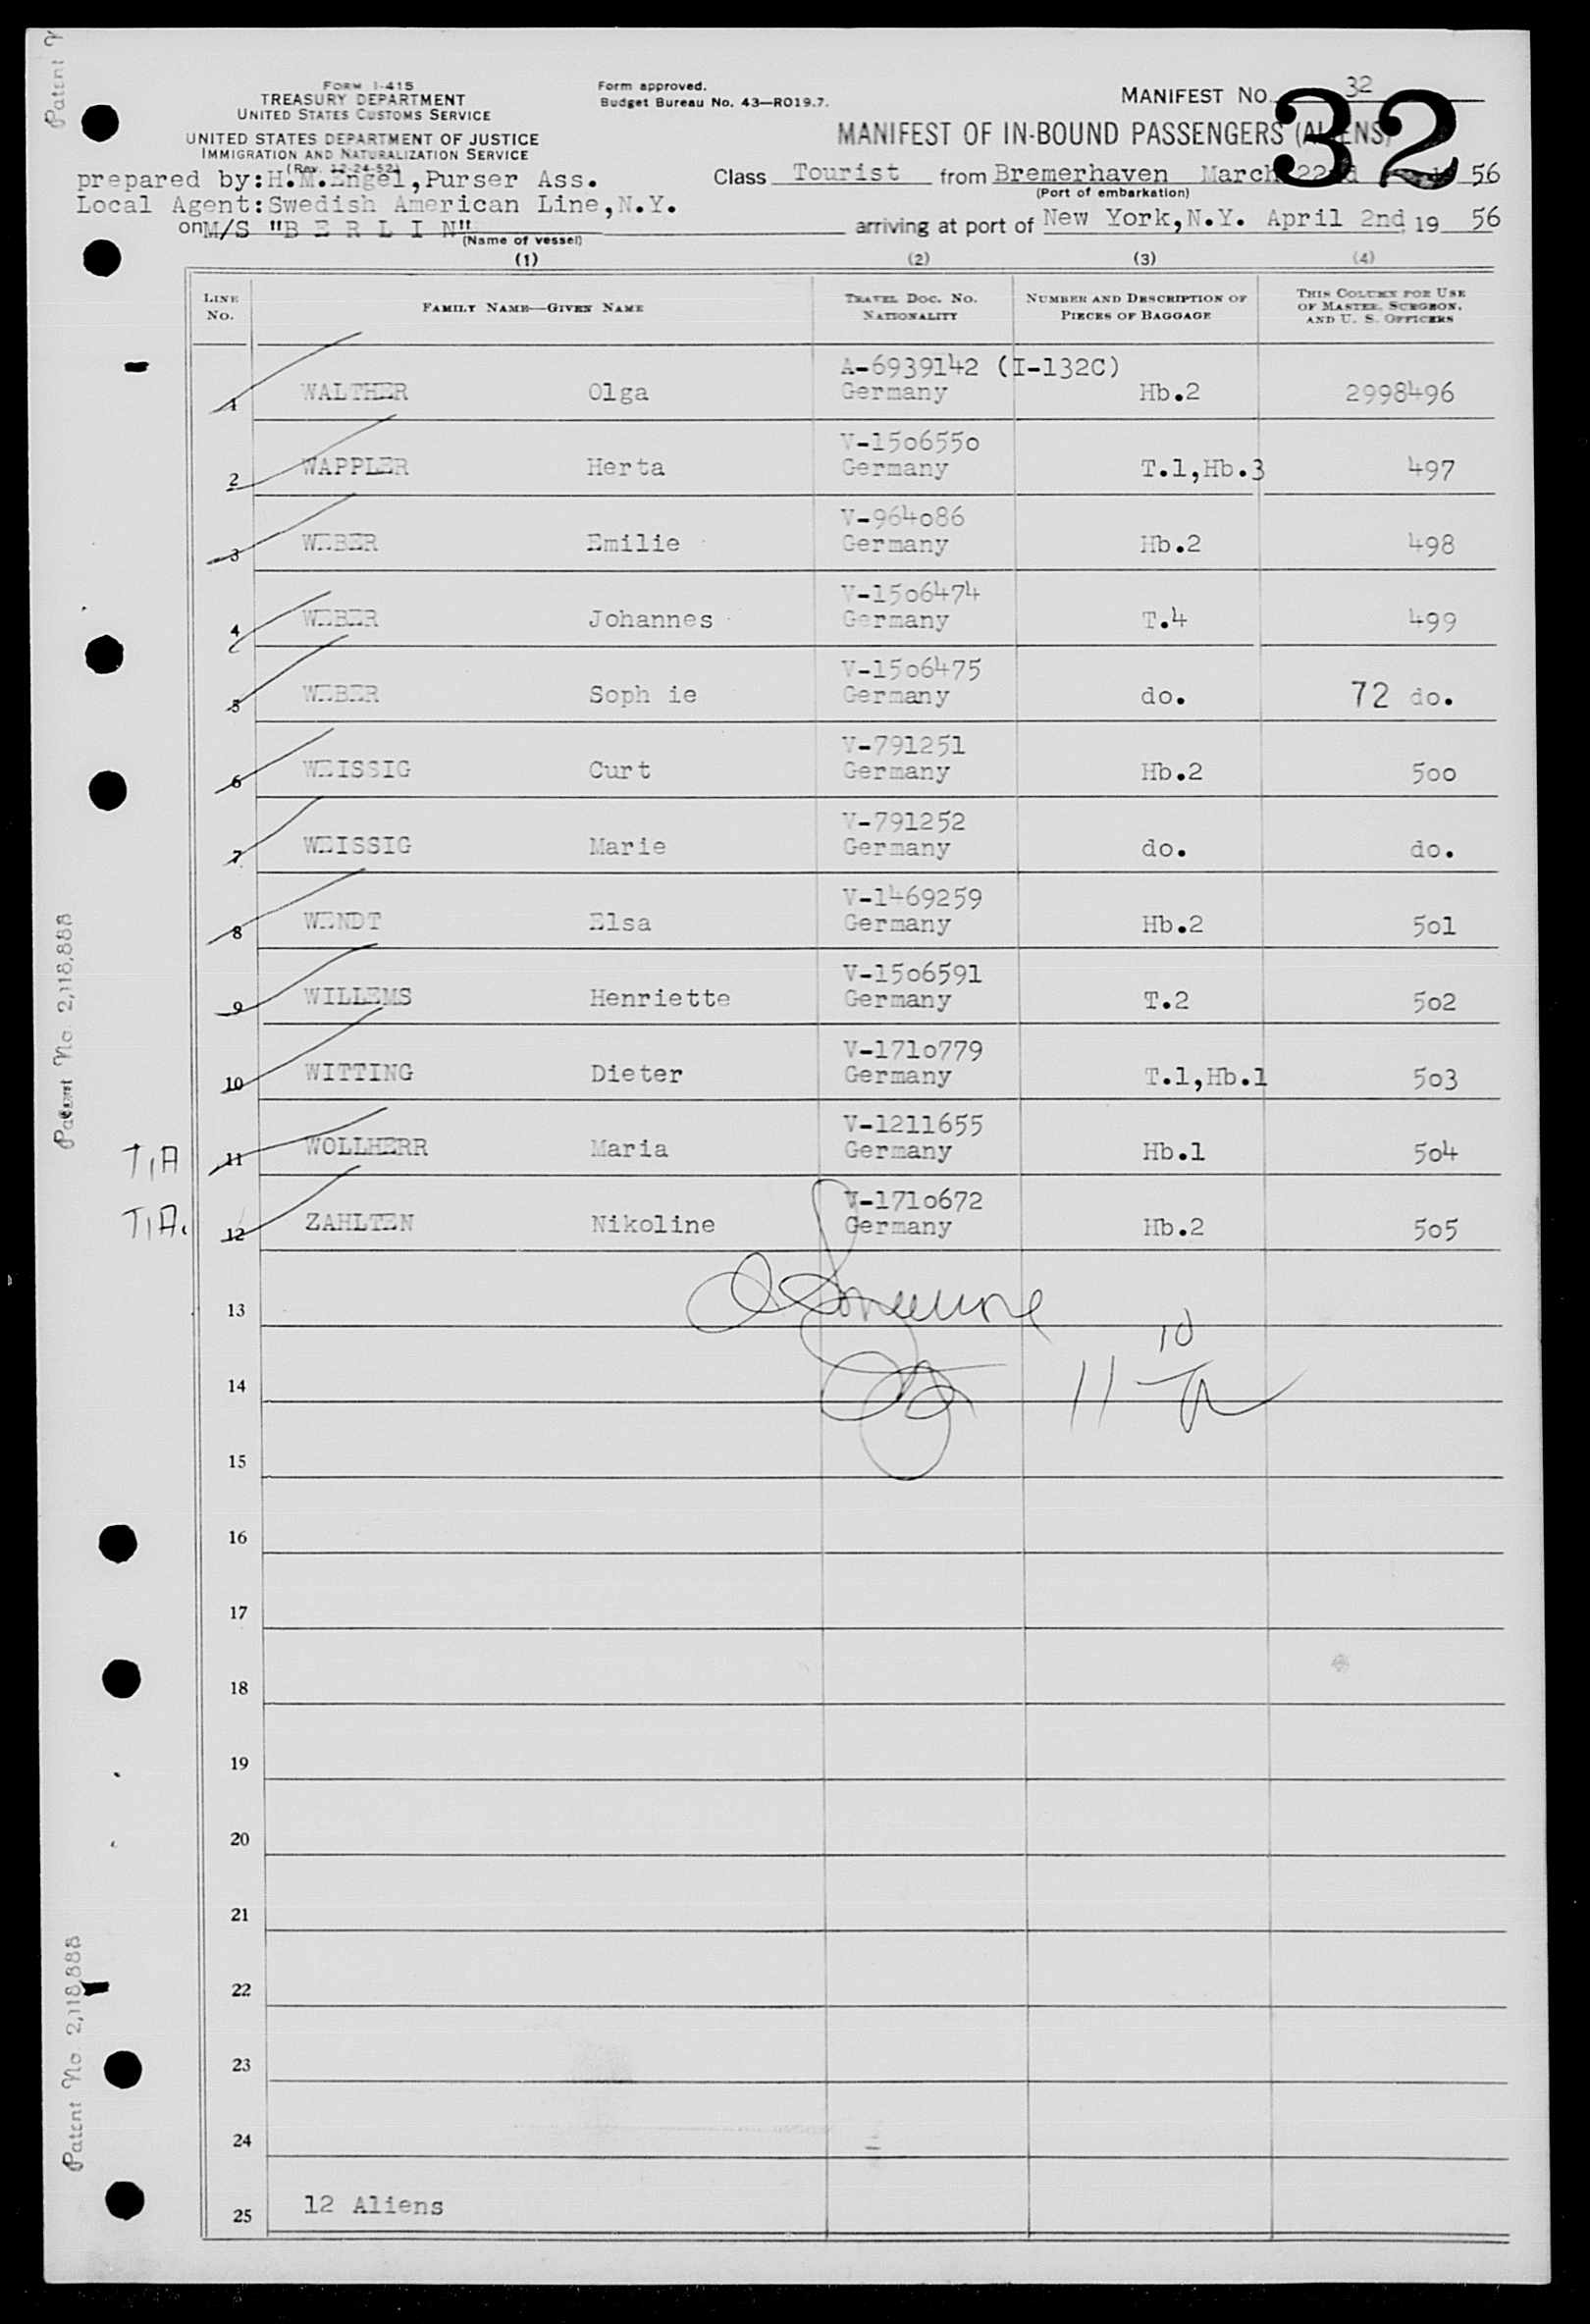 Patent N
FORM I-415
TREASURY DEPARTMENT
UNITED STATES CUSTOMS SERVICE
UNITED STATES DEPARTMENT OF JUSTICE
IMMIGRATION AND NATURALIZATION SERVICE
(Rev. 12-24-52)
Form approved.
Budget Bureau No. 43—RO19.7.
MANIFEST NO. 32
32
MANIFEST OF IN-BOUND PASSENGERS (ALIENS)
prepared by:H.M.Engel,Purser Ass.
Class Tourist from Bremerhaven March 22nd 1956
(Port of embarkation)
Local Agent:Swedish American Line,N.Y.
on M/S "B E R L I N"
(Name of vessel)
arriving at port of New York,N.Y. April 2nd, 19 56
(1) (2) (3) (4)
LINE NO. FAMILY NAME—GIVEN NAME TRAVEL DOC. NO. NATIONALITY NUMBER AND DESCRIPTION OF PIECES OF BAGGAGE THIS COLUMN FOR USE OF MASTER, SURGEON, AND U. S. OFFICERS
A-6939142 (I-132C)
1 WALTHER Olga Germany Hb.2 2998496
V-1506550
2 WAPPLER Herta Germany T.1,Hb.3 497
V-964086
3 WEBER Emilie Germany Hb.2 498
V-1506474
4 WEBER Johannes Germany T.4 499
V-1506475
5 WEBER Soph ie Germany do. 72 do.
V-791251
6 WEISSIG Curt Germany Hb.2 500
V-791252
7 WEISSIG Marie Germany do. do.
V-1469259
8 WENDT Elsa Germany Hb.2 501
V-1506591
9 WILLEMS Henriette Germany T.2 502
V-1710779
10 WITTING Dieter Germany T.1,Hb.1 503
V-1211655
T,A 11 WOLLHERR Maria Germany Hb.1 504
V-1710672
T,A. 12 ZAHLTEN Nikoline Germany Hb.2 505
13
10
14 11
15
16
17
18
19
20
21
22
23
24
25 12 Aliens
Patent No. 2,118,888
Patent No. 2,118,888